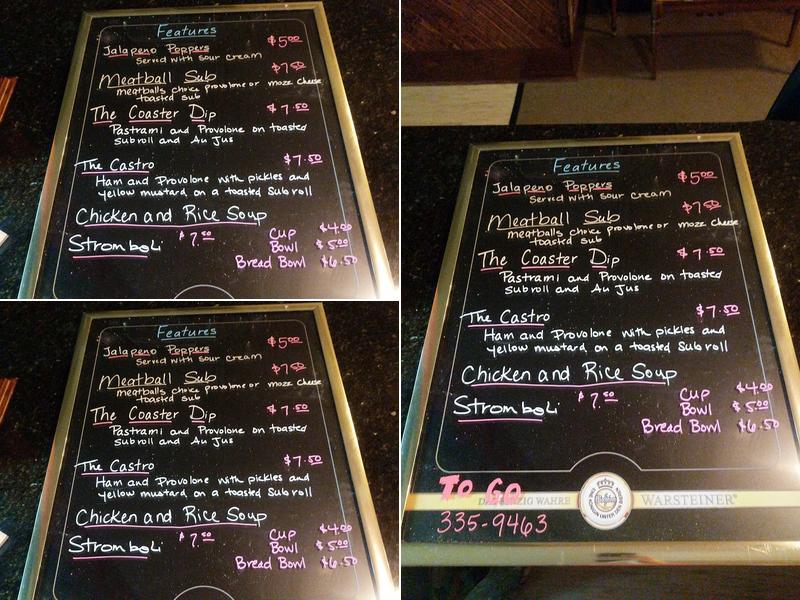 Features
Jalapeno Poppers $5.00
Served with sour cream
Meatball Sub $7.50
meatballs choice provolone or mozz cheese
toasted sub
The Coaster Dip $7.50
Pastrami and Provolone on toasted
Sub roll and Au Jus
The Castro $7.50
Ham and Provolone with pickles and
yellow mustard on a toasted Sub roll
Chicken and Rice Soup
Stromboli $7.50 Cup $4.00
Bowl $5.00
Bread Bowl $6.50
Features
Jalapeno Poppers $5.00
Served with sour cream
Meatball Sub $7.50
meatballs choice provolone or mozz cheese
toasted sub
The Coaster Dip $7.50
Pastrami and Provolone on toasted
Sub roll and Au Jus
The Castro $7.50
Ham and Provolone with pickles and
yellow mustard on a toasted Sub roll
Chicken and Rice Soup
Stromboli $7.50 Cup $4.00
Bowl $5.00
Bread Bowl $6.50
Features
Jalapeno Poppers $5.00
Served with sour cream
Meatball Sub $7.50
meatballs choice provolone or mozz cheese
toasted sub
The Coaster Dip $7.50
Pastrami and Provolone on toasted
Sub roll and Au Jus
The Castro $7.50
Ham and Provolone with pickles and
yellow mustard on a toasted Sub roll
Chicken and Rice Soup
Stromboli $7.50 Cup $4.00
Bowl $5.00
Bread Bowl $6.50
TO GO
WAHRE WARSTEINER
335-9463